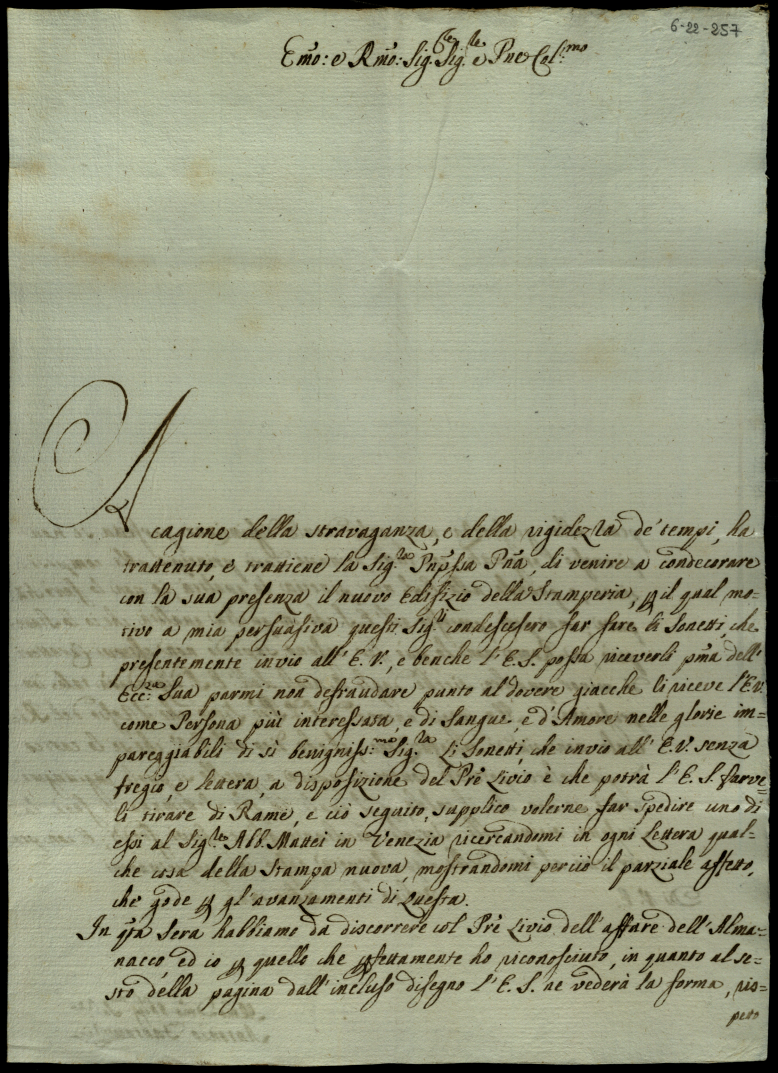 6-22-257
Emo: e Rmo: Sig:re Sig:re e Pne Col:mo
A cagione della stravaganza, e della rigidezza de' tempi, ha
trattenuto, e trattiene la Sig:ra Pnpssa Pna, di venire a condecorare
con la sua presenza il nuovo Edifizio della Stamperia, p il qual mo=
tivo a mia persuasiva questi Sig:ri condescesero far fare li Sonetti, che
presentemente invio all' E. V., e benche l' E. S. possa riceverli pma dell'
Ecc:za Sua parmi non defraudare punto al dovere giacche li riceve l'E.V.
come Persona più interessata, e di Sangue, e d'Amore nelle glorie im=
pareggiabili di sì benigniss:ma Sig:ra Li Sonetti, che invio all' E.V. senza
fregio, e lettera, a disposizione del Prè Livio è che potrà l' E. S. farve=
li tirare di Rame, e ciò seguito, supplico volerne far spedire uno di
essi al Sig:re Abb. Mattei in Venezia ricercandomi in ogni Lettera qual=
che cosa della Stampa nuova, mostrandomi perciò il parziale affetto,
che gode p gl'avanzamenti di questa.
In qta Sera habbiamo da discorrere col Prè Livio dell' affare dell' Alma=
nacco, ed io p quello che pfettamente ho riconosciuto, in quanto al se=
sto della pagina dall' incluso disegno l' E. S. ne vederà la forma, ris=
petto